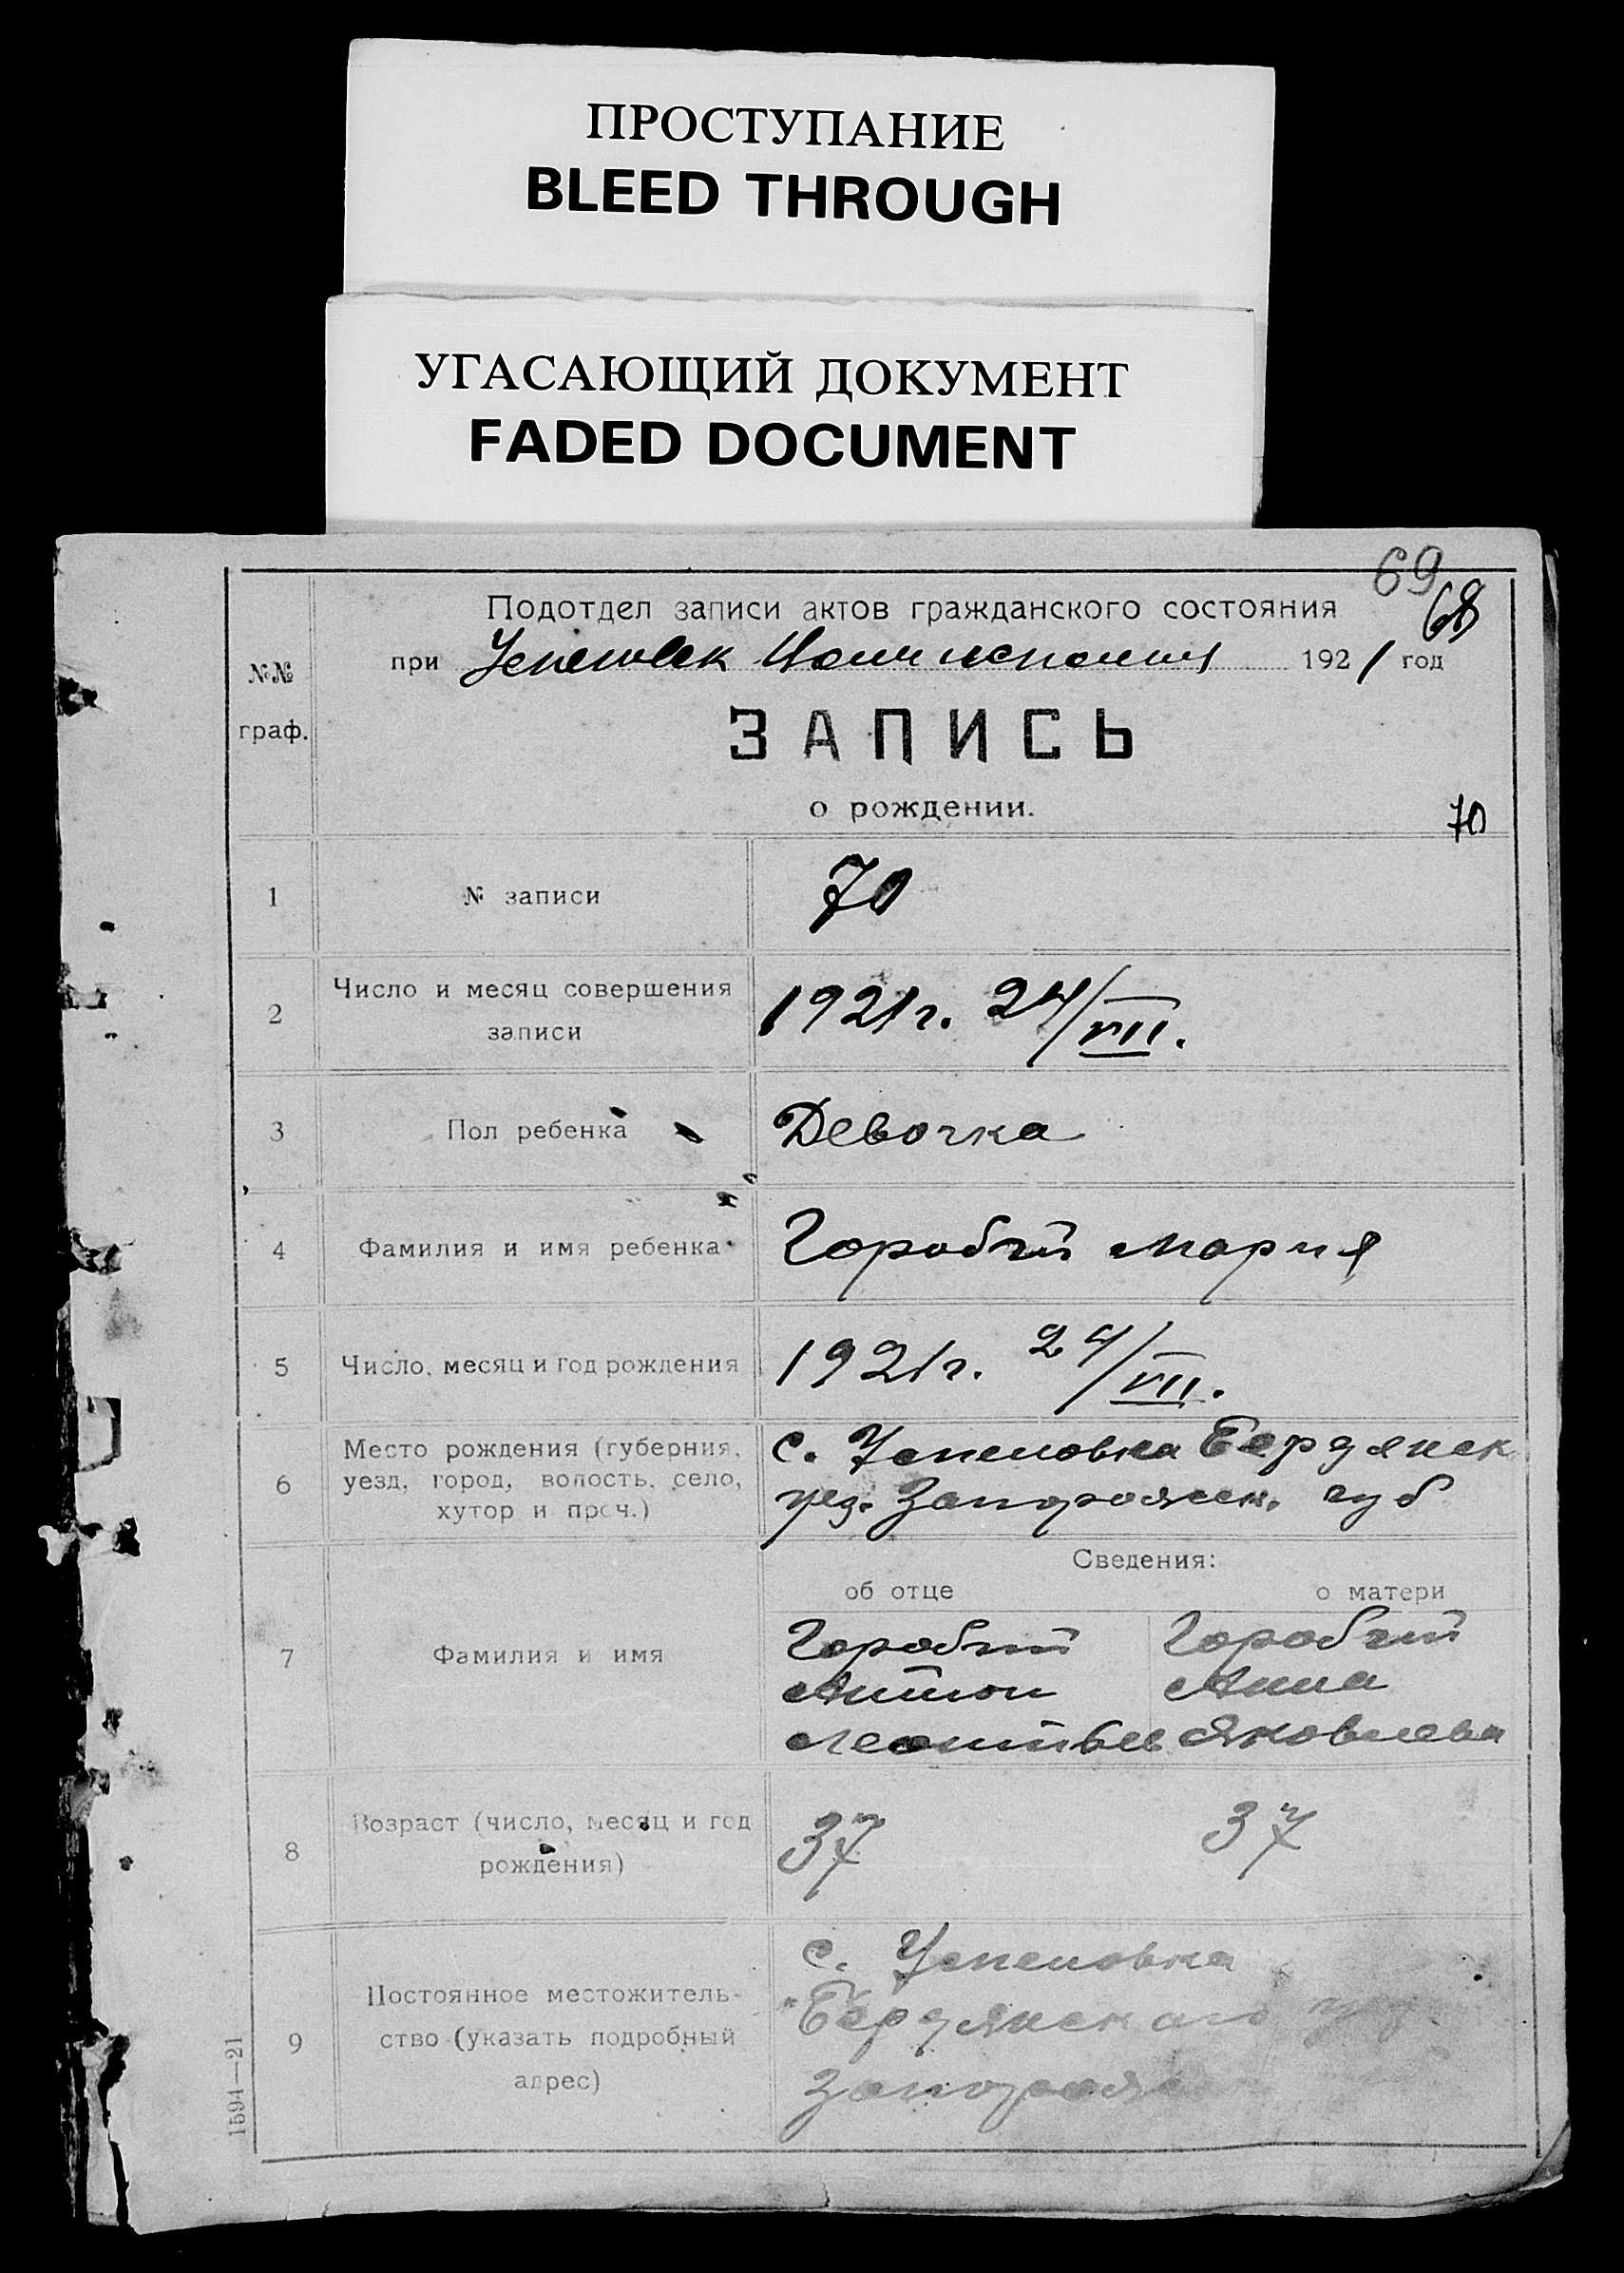 ПРОСТУПАНИЕ
BLEED THROUGH
УГАСАЮЩИЙ ДОКУМЕНТ
FADED DOCUMENT
69
68
Подотдел записи актов гражданского состояния
при Успеновск 1921 год
№№
граф.
ЗАПИСЬ
о рождении.
70
1 № записи 70
2 Число и месяц совершения
записи
1921 г. 24/VII.
3 Пол ребенка Девочка
4 Фамилия и имя ребенка Горобчий Мария
5 Число, месяц и год рождения 1921 г. 24/VII.
6 Место рождения (губерния,
уезд, город, волость, село,
хутор и проч.)
с. Успеновка Бердянск
уез. Запорожск. губ
Сведения:
об отце о матери
7 Фамилия и имя
Горобчий Горобчий
Антон Анна
Леонтьев Яковлева
8 Возраст (число, месяц и год
рождения)
37 37
9 Постоянное местожитель-
ство (указать подробный
адрес)
с. Успеновка
Бердянского
Запорож
1594—21